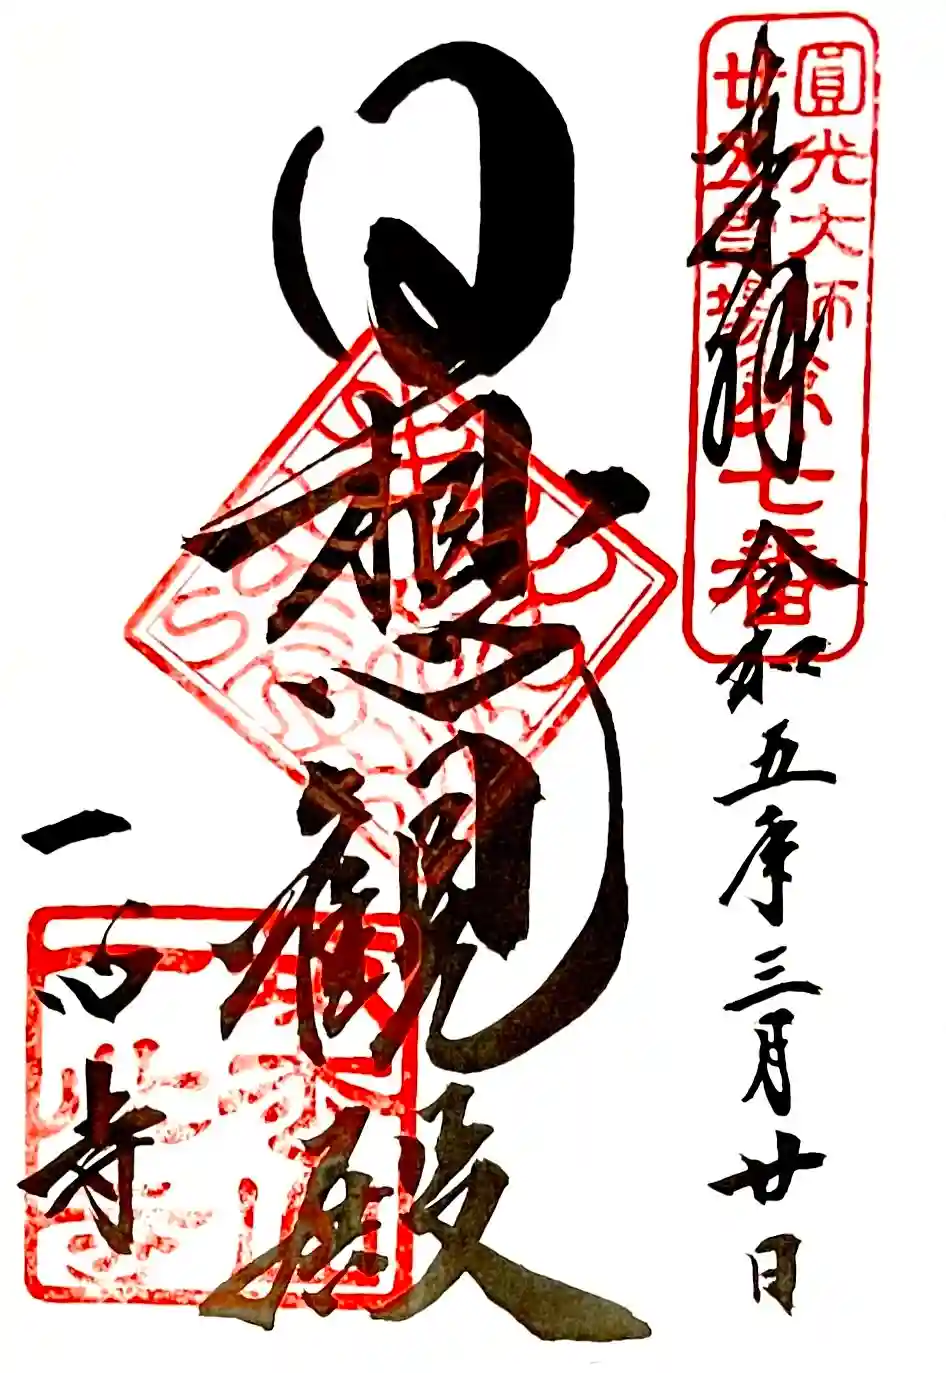 圓光大師
廿五霊場第七番
奉拝
令和五年三月廿日
日想観殿
一心寺